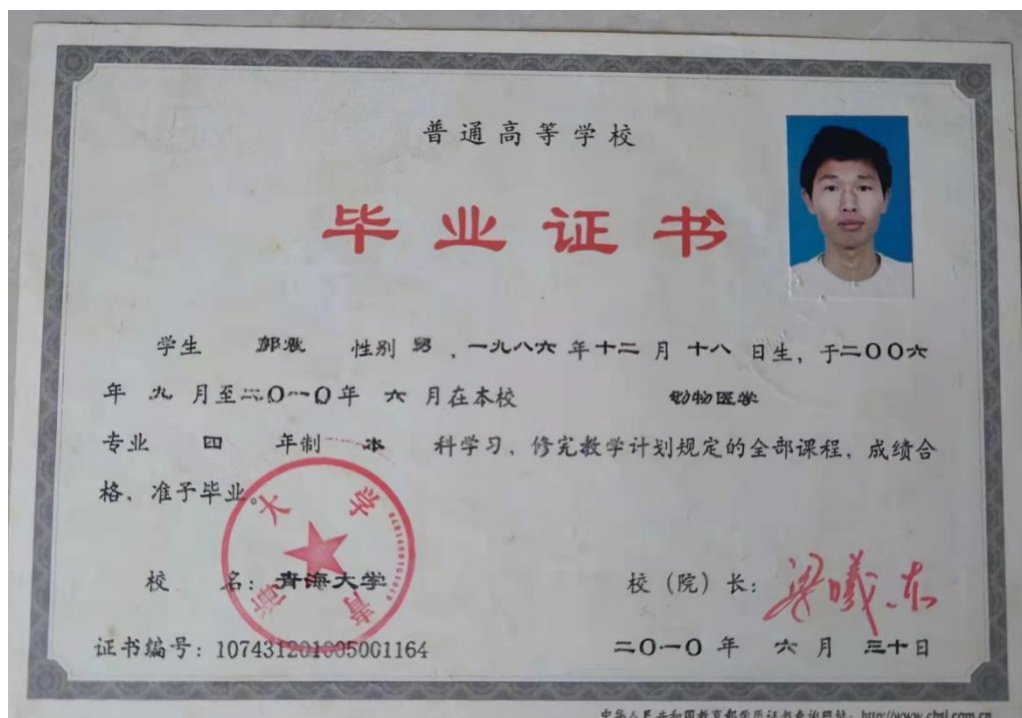 普通高等学校
毕业证书
学生 郭 性别 男，一九八六 年 十二 月 十八 日生，于二〇〇六
年 九 月至二〇一〇年 六 月在本校 动物医学
专业 四 年制 本 科学习，修完教学计划规定的全部课程，成绩合
格，准予毕业。
青海大学
校 名：青海大学 校（院）长：梁曦东
证书编号：107431201005001164 二〇一〇 年 六 月 三十日
中华人民共和国教育部学历证书查询网址：http://www.chsi.com.cn